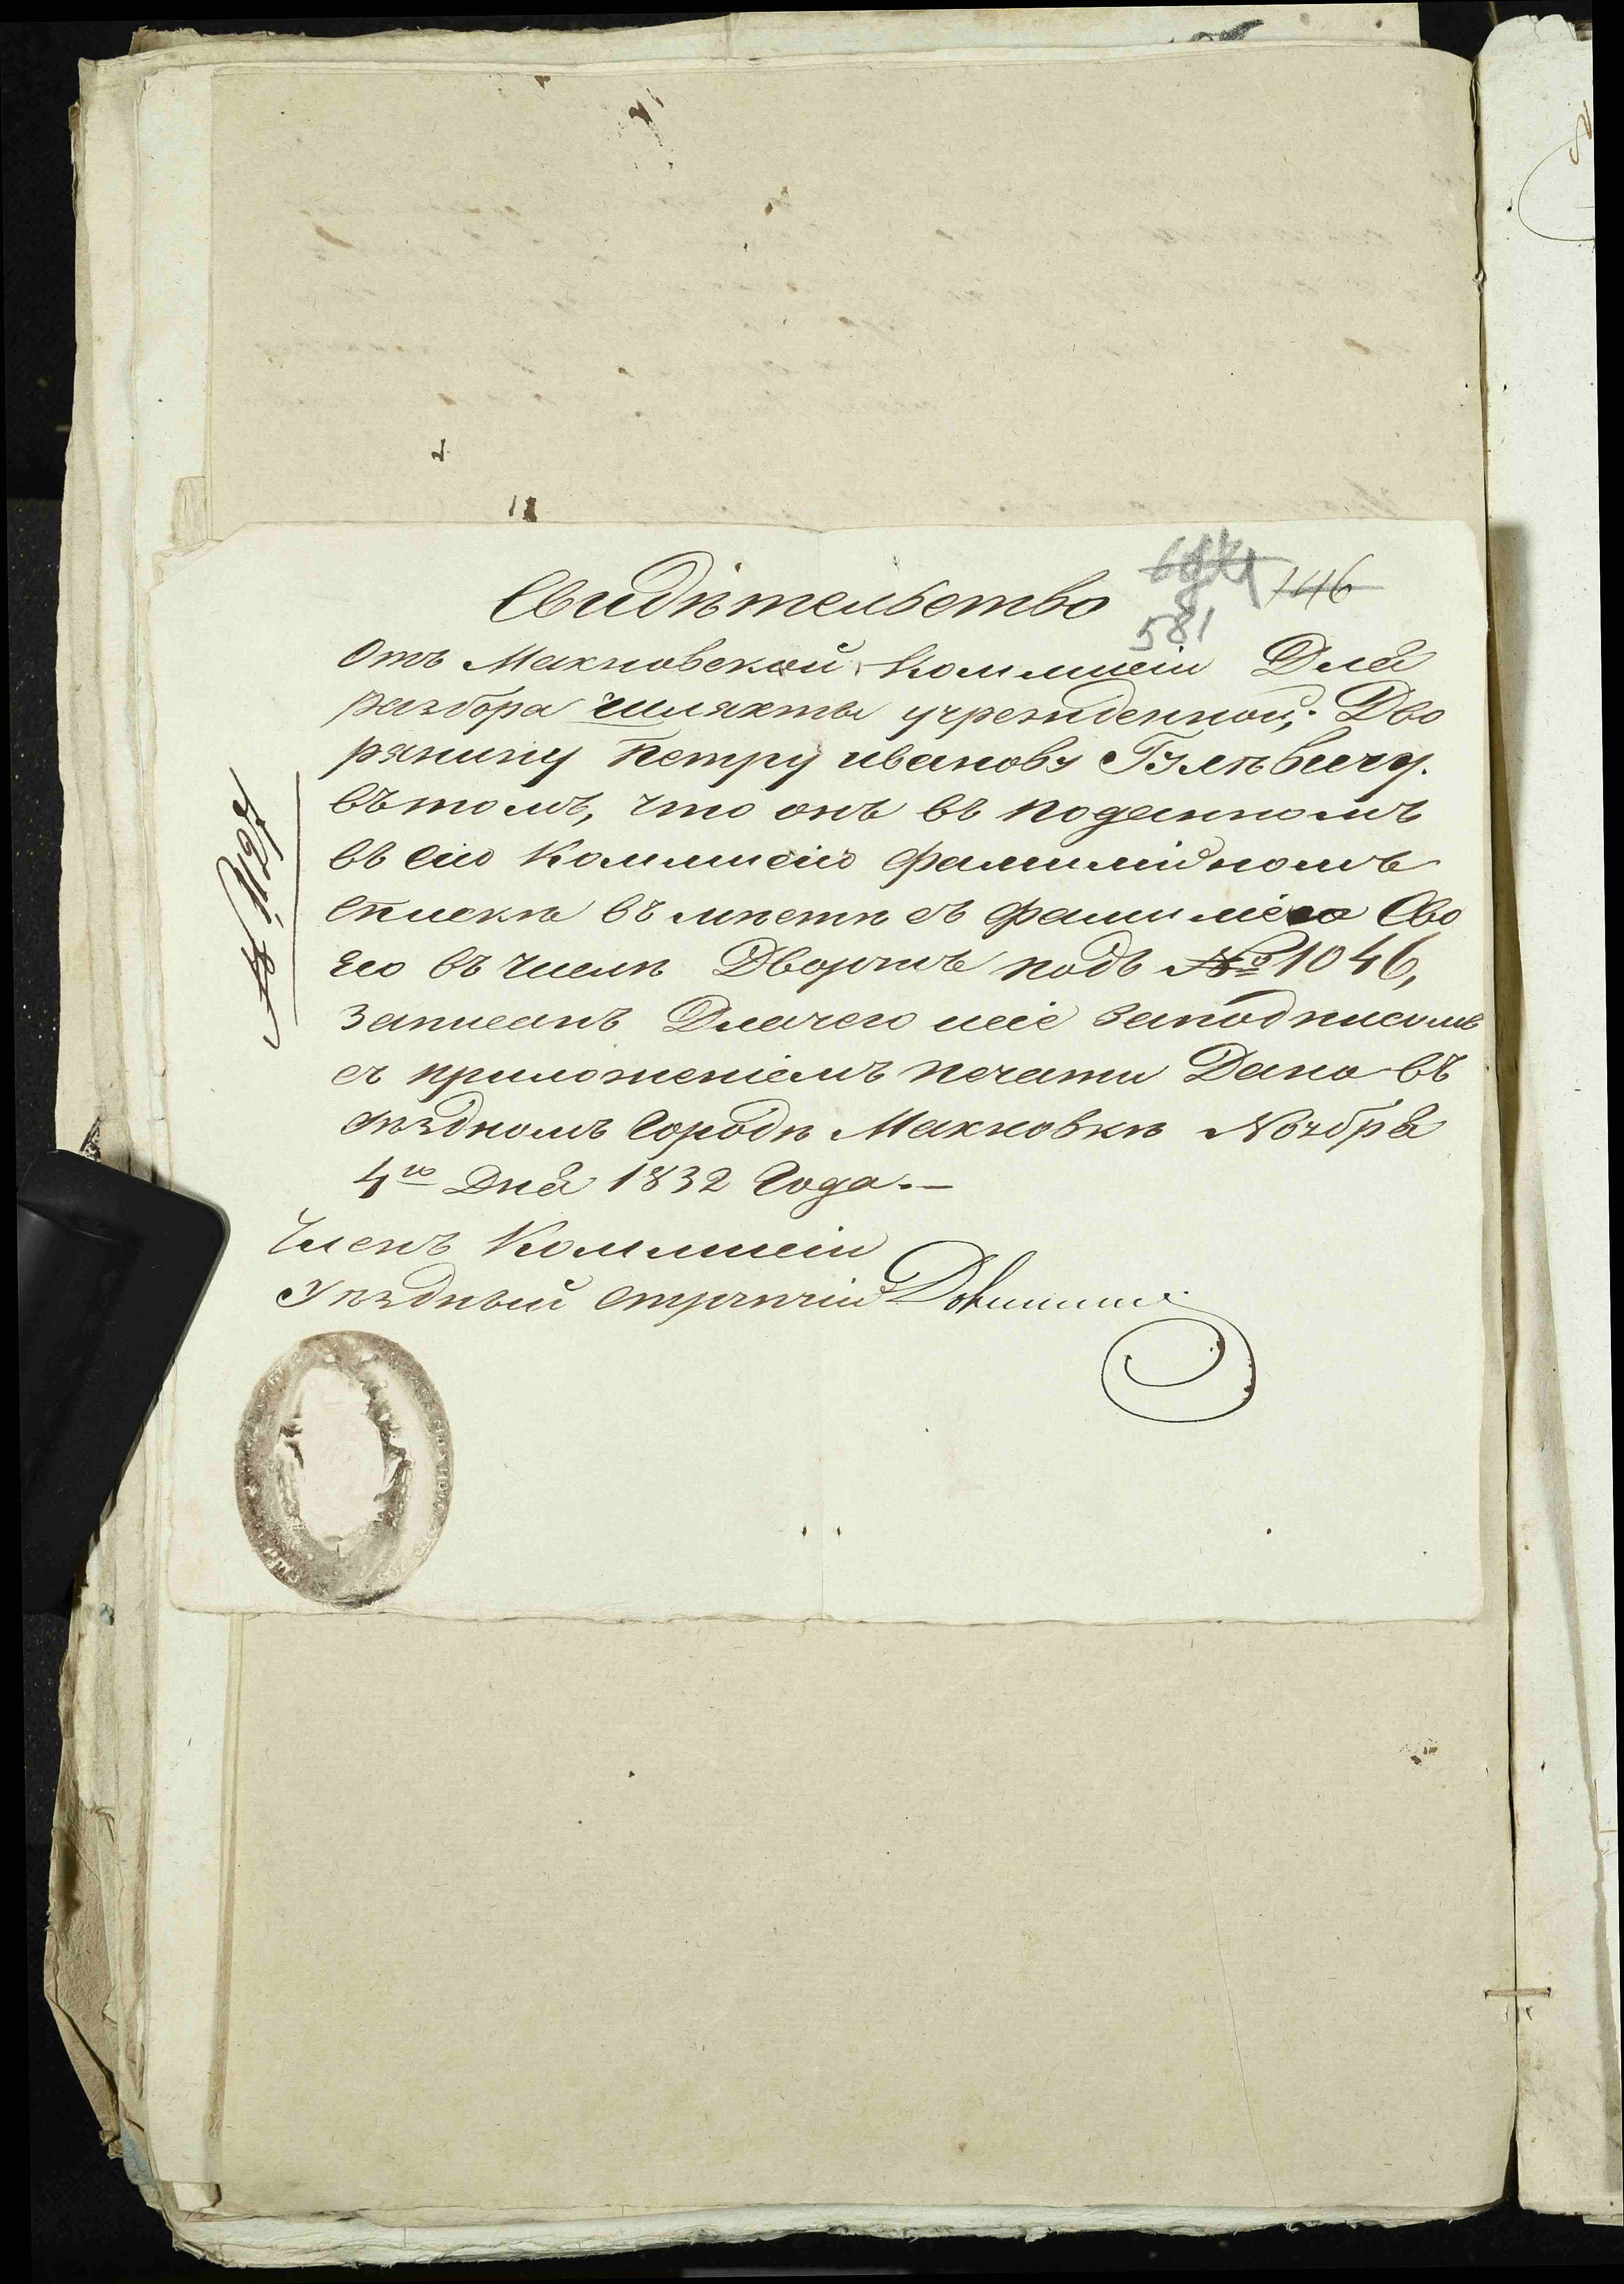 Свидѣтельство
581
146
Отъ Махновской Коммисіи Для
разбора шляхты учрежденной; Дво
рянину Петру иванову
въ томъ, что онъ въ поданномъ
въ сію Коммисію фамилійномъ
Спискѣ въ мѣстѣ съ фамиліею Сво
ею въ числѣ Дворянъ подъ № 1046,
записанъ Длячего сіе заподписомъ
съ приложеніемъ печати Дано въ
городѣ Махновкѣ Ноября
4го Дня 1832 Года.—
Членъ Коммисіи
Уѣздный стряпчій
№ 1127